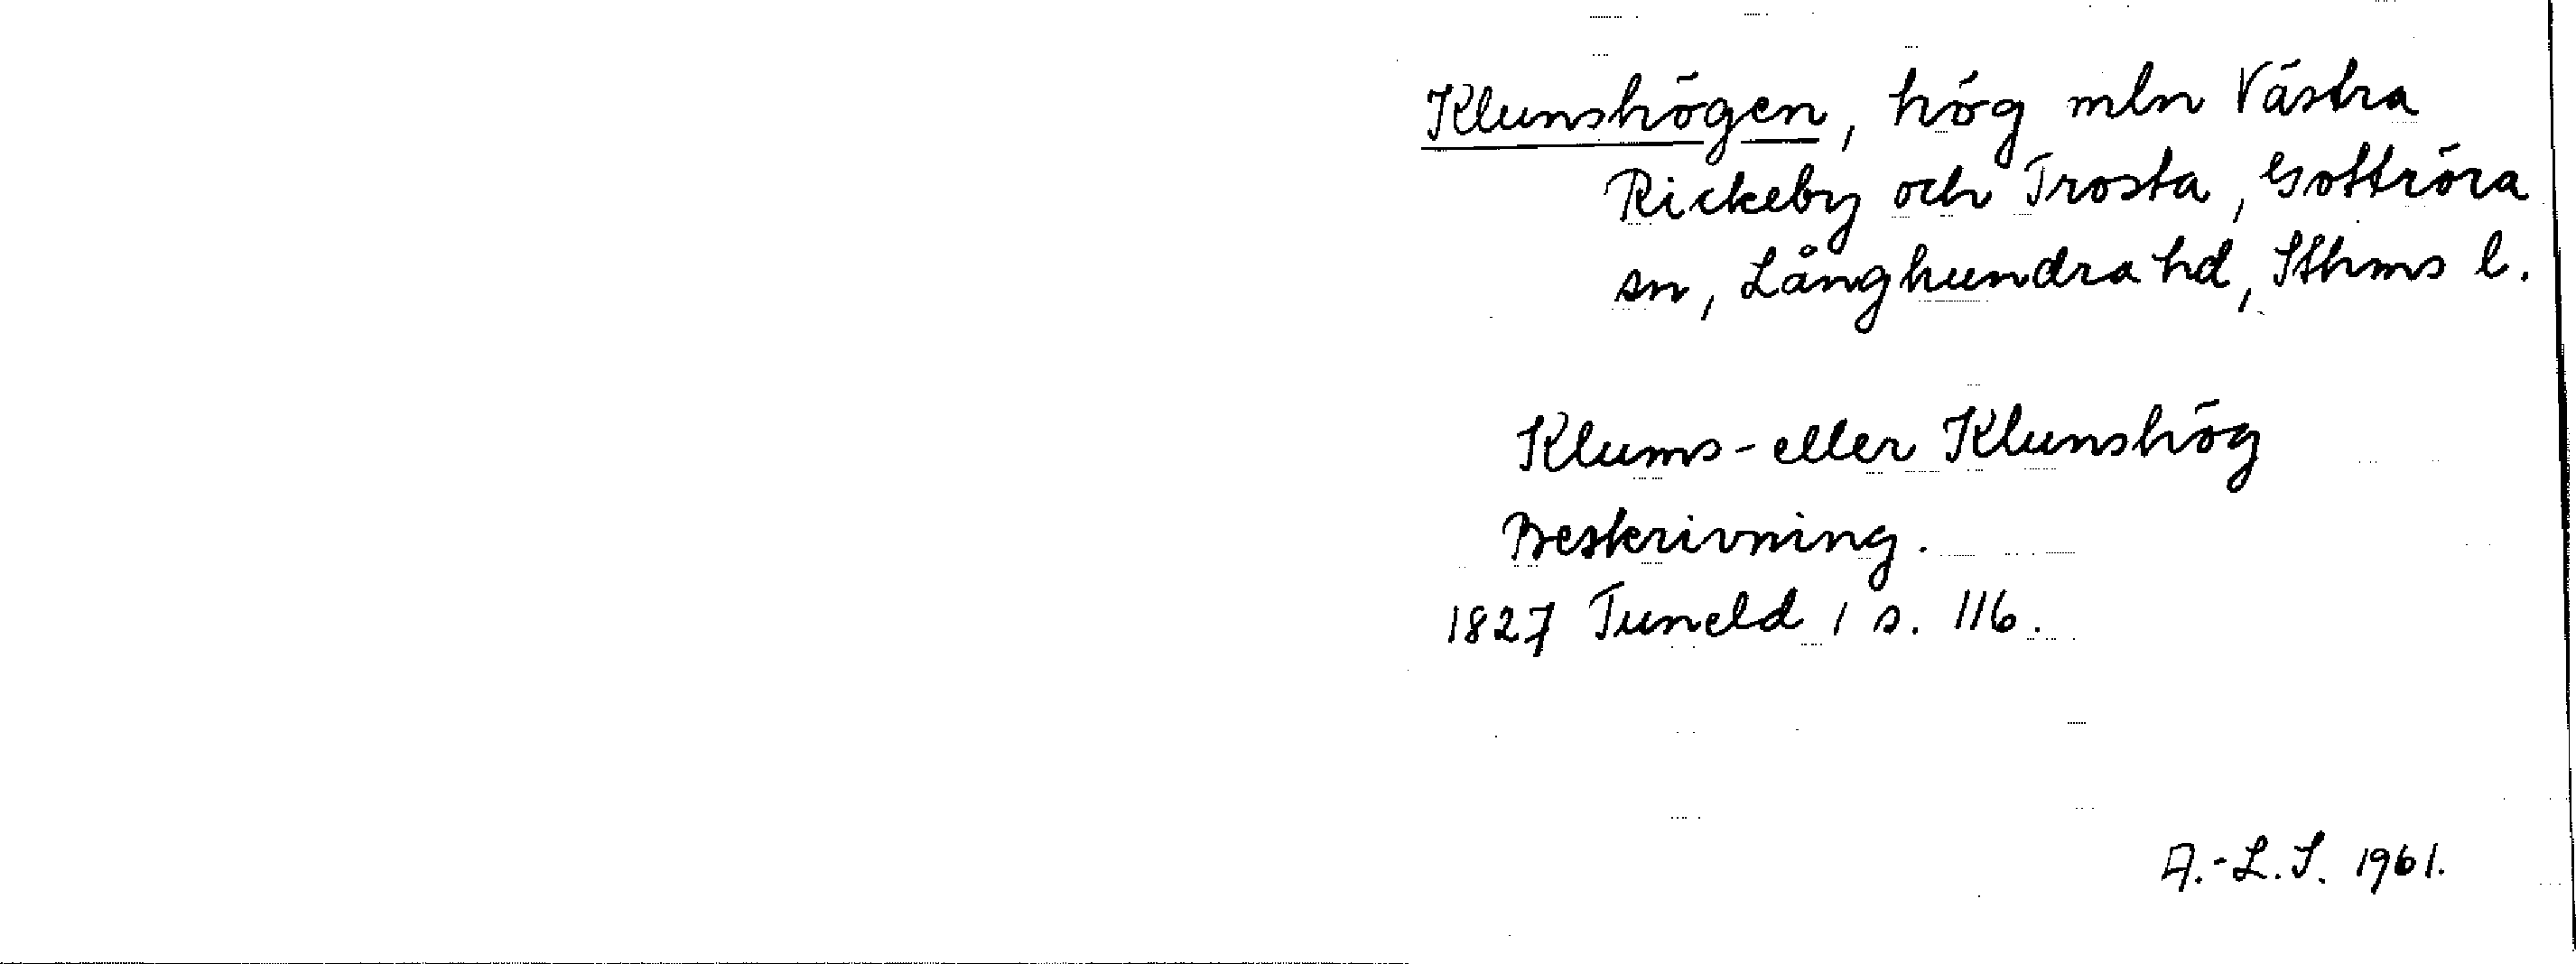 Klunshögen, hög mln Västra
Rickeby och Trosta, Gottröra
sn, Långhundra hd, Sthms l.
Klums- eller Klunshög
Beskrivning.
1827 Tuneld 1 s. 116.
A.-L.S. 1961.